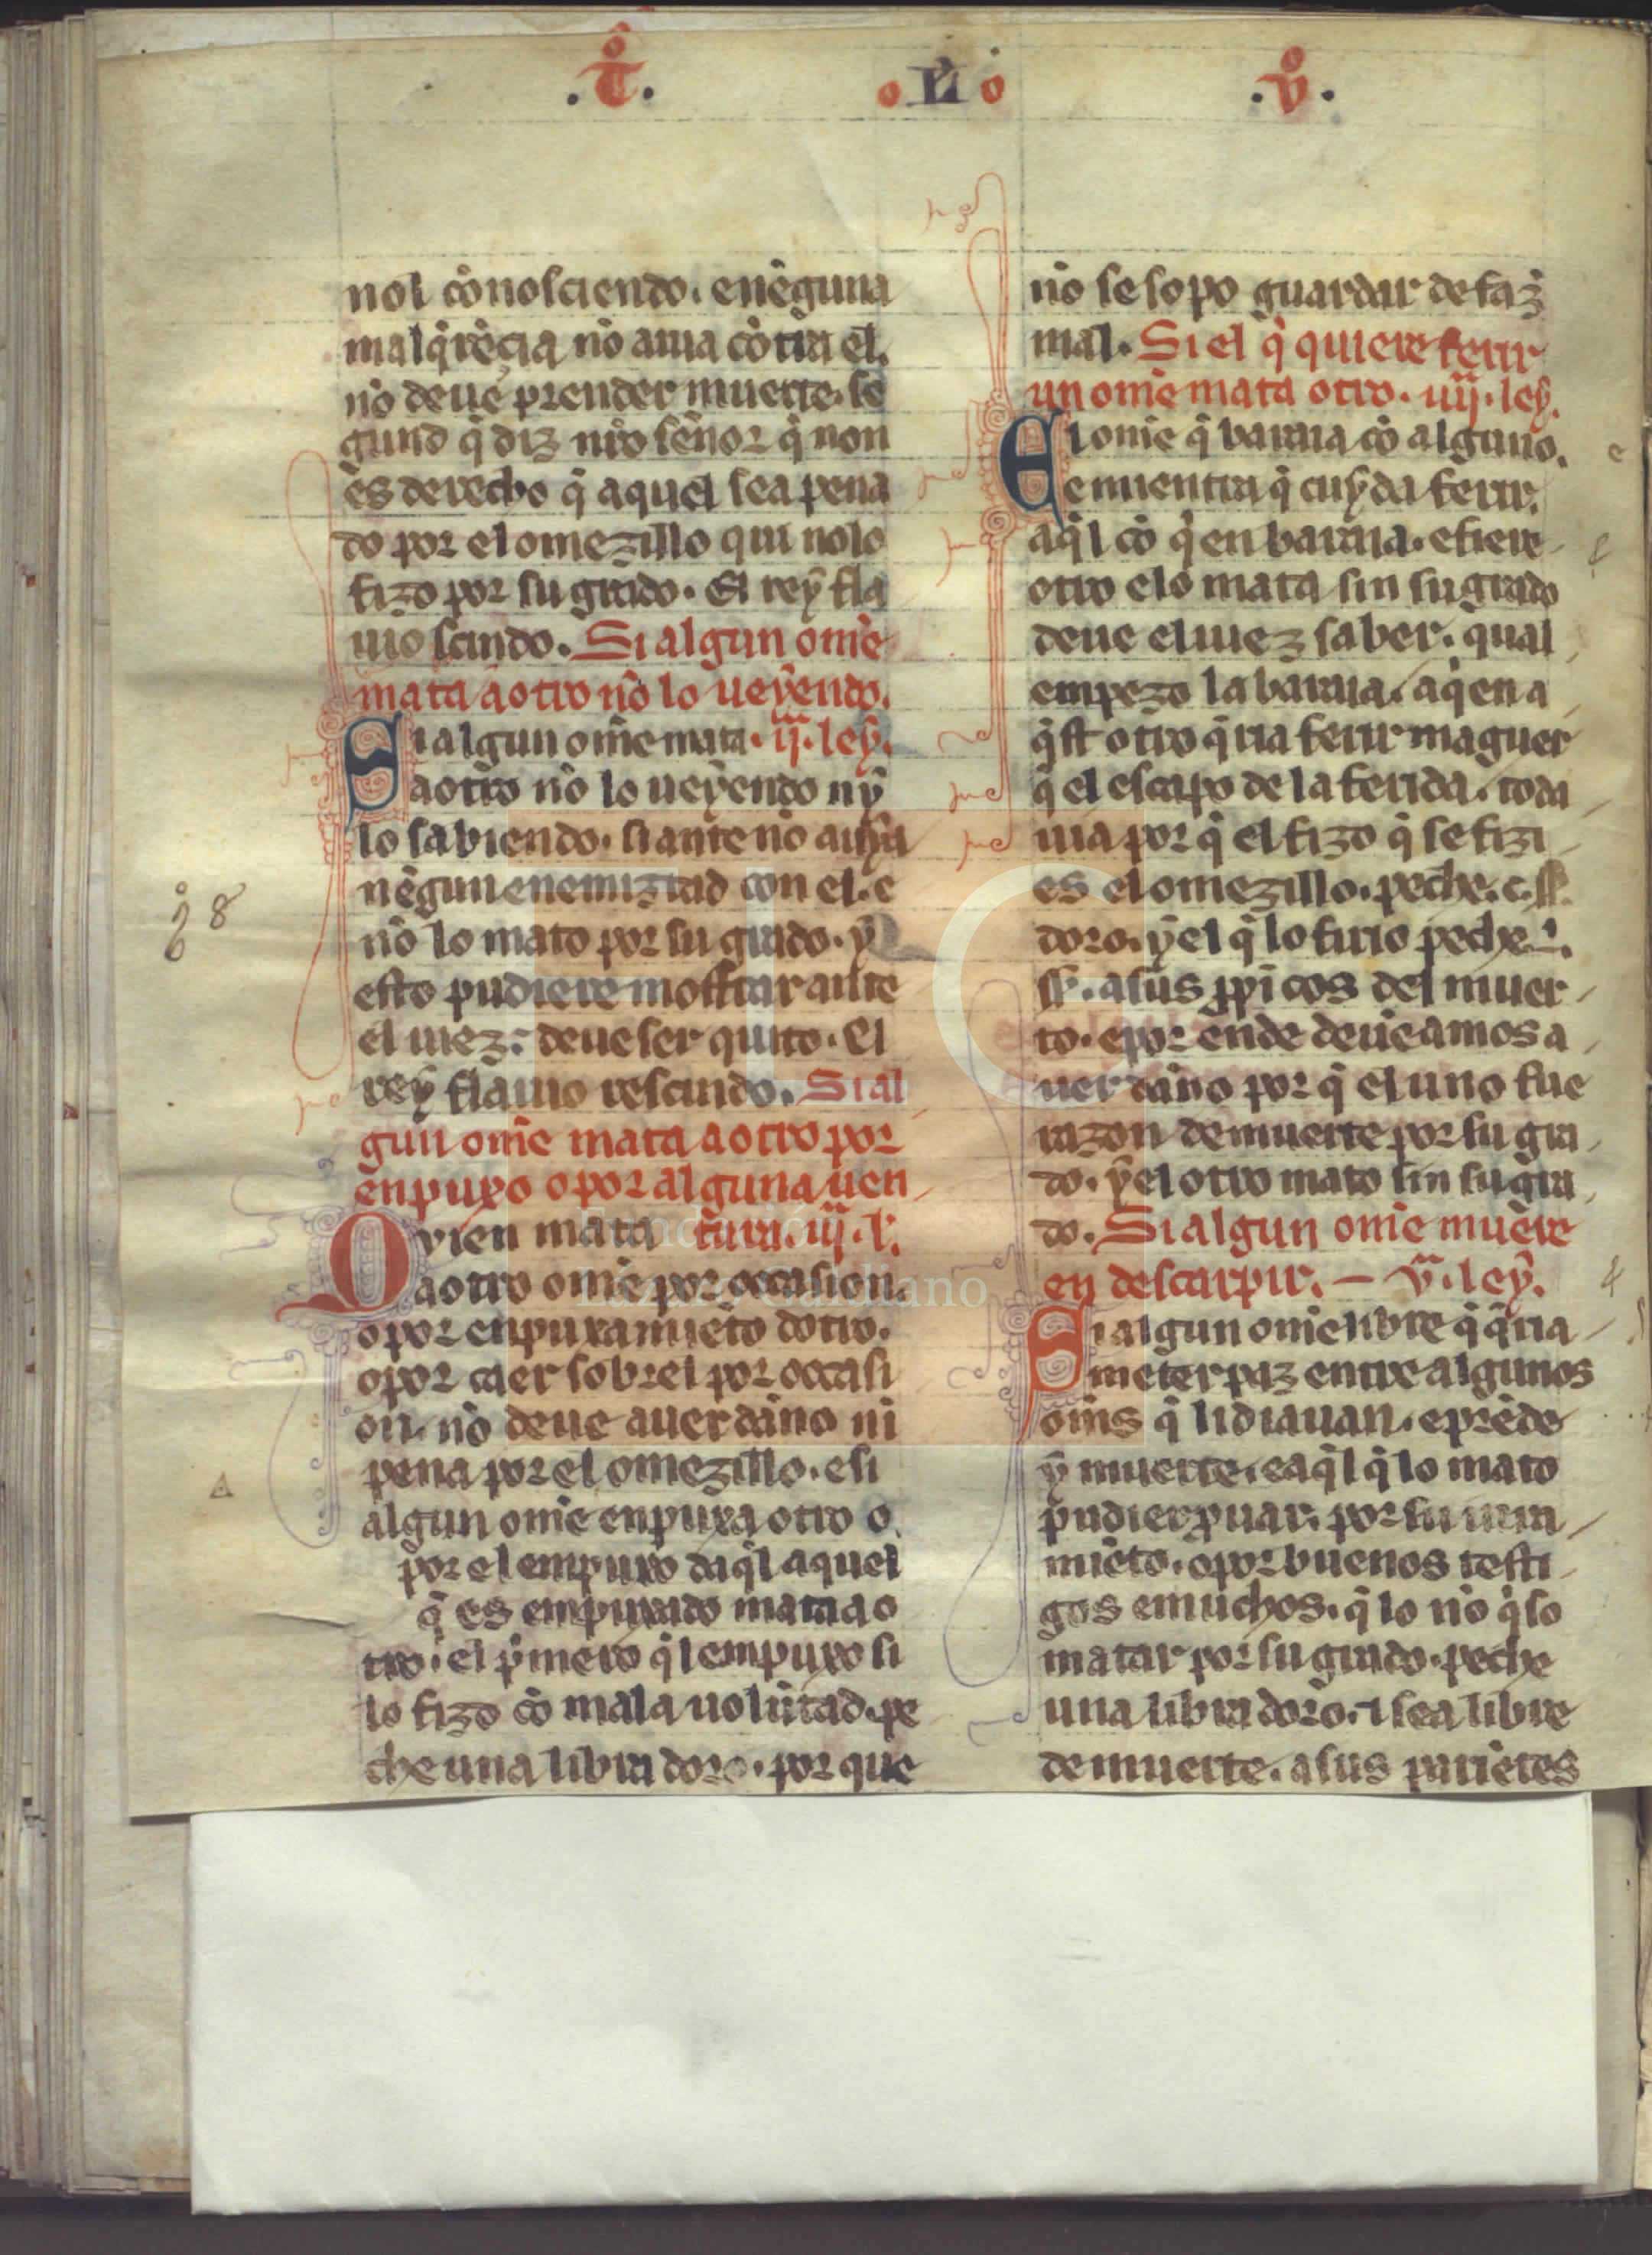 .Tº. o LIº o .vº.
nol cònosciendo. enẽguna
malq̃rẽcia nõ auia cõtra el.
nõ deue prender muerte. se
gund q̃ diz nr̃o señor q̃ non
es derecho q̃ aquel sea pena
do por el omezillo qui nolo
fizo por su grado. El rey fla
uio scindo. Si algun omẽ
mata a otro nõ lo ueyendo.
Si algun omẽ mata. ij. ley.
a otro nõ lo ueyendo nỹ
lo sabiendo. si ante nõ auỹa
nẽgun enemiztad con el. e
nõ lo mato por su grado. y
esto pudiere mostrar ante
el iuez. deue ser quito. El
rey flauio rescindo. Si al
gun omẽ mata a otro por
enpuxo o por alguna uen
Qvien mata tura. iij. l.
a otro omẽ por occasion.
o por enpuxamiẽto dotro.
o por caer sobrel por occasi
on. nõ deue auer daño ni
pena por el omezillo. e si
algun omẽ enpuxa otro o
por el empuxo daq̃l aquel
q̃ es empuxado mata a o
tro. el p̃mero q̃l empuxo si
lo fizo cõ mala uolũtad. pe
che una libra doro. por que
nõ se sopo guardar de faz̃
mal. Si el q̃ quiere ferir
un omẽ mata otro. iiij. ley.
El omẽ q̃ baraia cõ alguno.
e mientra q̃ cuyda ferir.
aq̃l cõ q̃ en baraia. e fiere
otro e lo mata sin su grado
deue el iuez saber. qual
empezo la baraia. aq̃ en a
q̃st otro q̃ria ferir maguer
q̃ el escapo de la ferida. toda
uia por q̃ el fizo q̃ se fizi
es el omezillo. peche. c. ss.
doro. y el q̃ lo firio peche. l.
ss. a sus ꝓpĩcos del muer
to. e por ende deuieamos a
uer daño por q̃ el uno fue
razon de muerte por su gra
do. y el otro mato sin su gra
do. Si algun omẽ muere
en descarpir. — v. ley.
Si algun omẽ libre q̃ q̃ria
meter paz entre algunos
om̃s q̃ lidiauan. e prẽde
ỹ muerte. e aq̃l q̃ lo mato
pudier ꝓuar. por su iura
miẽto. o por buenos testi
gos e muchos. q̃ lo nõ q̃so
matar por su grado. peche
una libra doro. ⁊ sea libre
de muerte. a sus pariẽtes
Fundación
Lázaro Galdiano